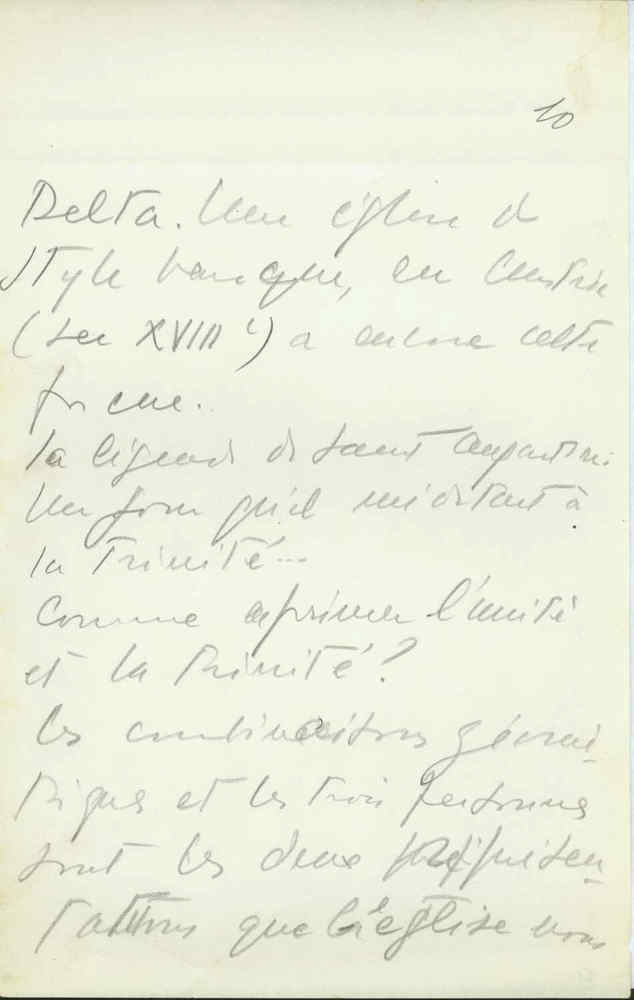 10
Delta. Une église de
style baroque, en Autriche
(sec XVIII) a encore cette
forme.
la légende de saint Augustin.
Un jour qu'il méditait à
la Trinité...
Comme exprimer l'unité
et la Trinité?
les combinaisons géomé-
triques et les trois personnes
sont les deux représen-
tations que l'église nous